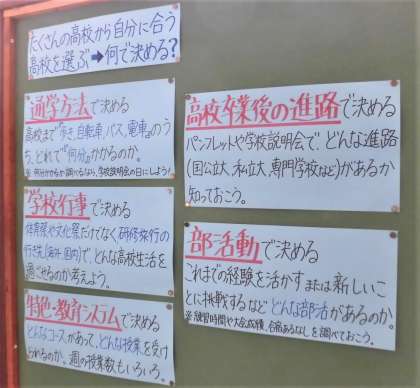 たくさんの高校から自分に合う
高校を選ぶ➡何で決める?
通学方法で決める
高校まで"歩き,自転車,バス,電車"のう
ち、どれで"何分"かかるのか。
※何分かかるか調べるなら、学校説明会の日にしよう!
学校行事で決める
体育祭や文化祭だけでなく研修旅行の
行き先(海外,国内)で、どんな高校生活を
過ごせるのか考えよう。
特色・教育システムで決める
どんなコースがあって、どんな授業を受け
られるのか、週の授業数もいろいろ。
高校卒業後の進路で決める
パンフレットや学校説明会で、どんな進路
(国公立大,私立大,専門学校など)があるか
知っておこう。
部活動で決める
これまでの経験を活かす または 新しいこ
とに挑戦するなど どんな部活があるのか。
※練習時間や大会成績,合宿あるなしを調べておこう。